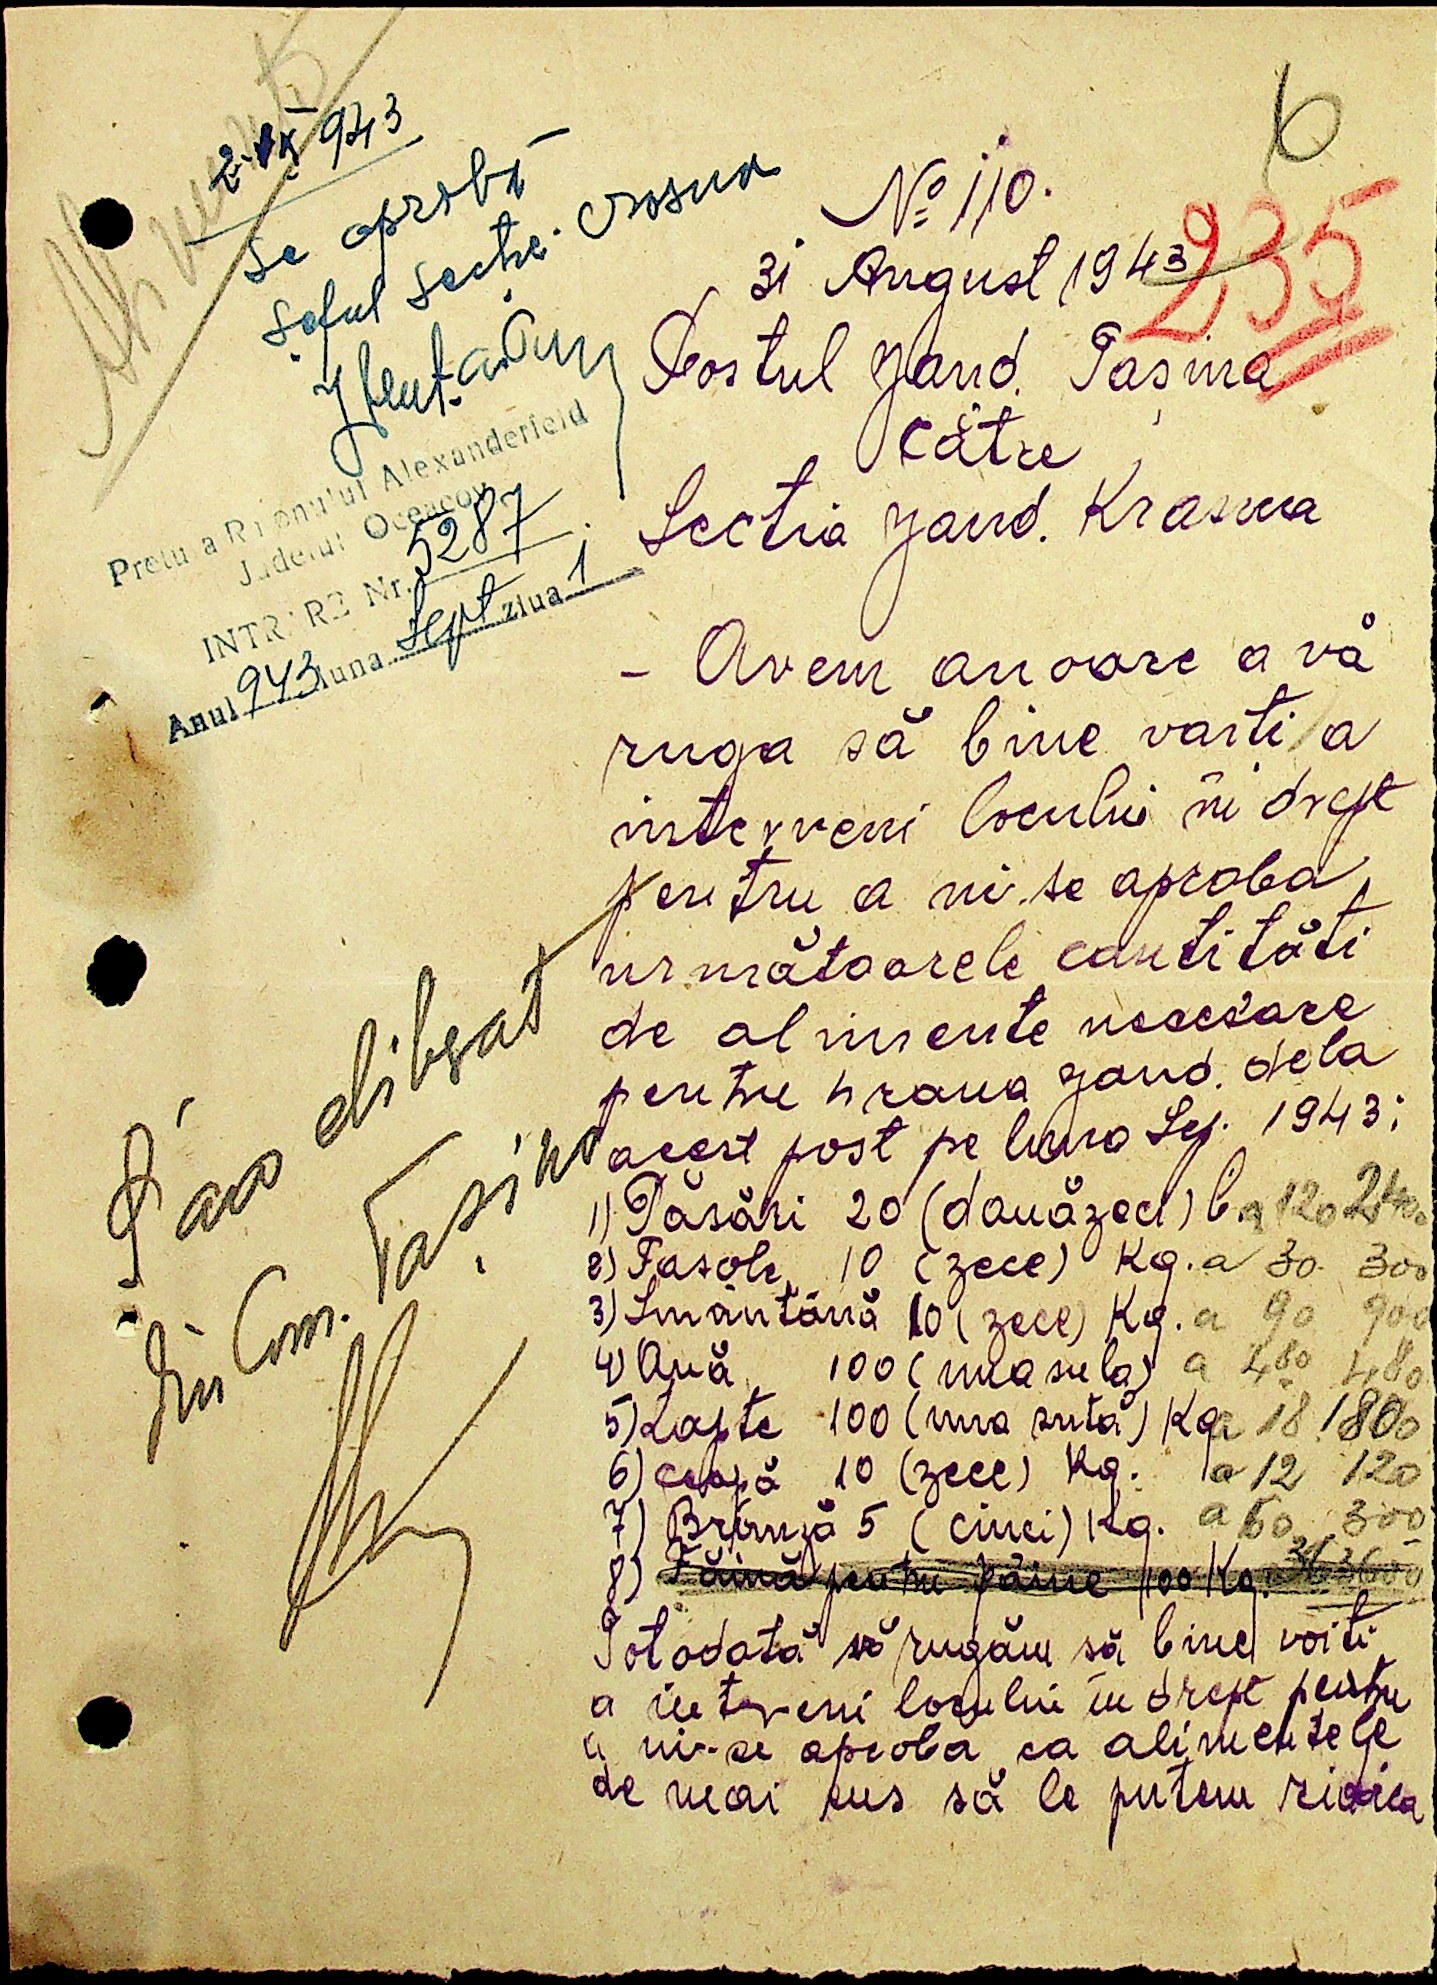 6
235
2 IX 943
Se aprobă
Șeful Secției Crasna
Pretura Raionului Alexanderfeld
Județul Oceacov
INTRARE Nr. 5287
Anul 943 luna Sept ziua 1
No 110.
31 August 1943
Postul Jand. Tașina
Către
Sectia Jand. Krasnea
- Avem anoare a vă
ruga să bine vaiti a
interveni locului în drept
pentru a ni se aproba
următoarele cantități
de alimente necesare
pentru hrana jand. dela
acest post pe luna Sep. 1943:
1) Păsări 20 (douăzeci) b a 120 2400
2) Fasole 10 (zece) Kg. a 30 300
3) Smântână 10 (zece) Kg. a 90 900
4) Ouă 100 (una suta) a 4 80 480
5) Lapte 100 (una sută) Kg a 18 1800
6) Ceapă 10 (zece) Kg. a 12 120
7) Brânză 5 (cinci) Kg. a 60 300
8) Făină pentru pâine 100 Kg. 36 3600
Totodată vă rugăm să bine voiti
a interveni locului în drept pentru
a ni-se aproba ca alimentele
de mai sus să le putem ridica
S'au elibeat
din Com. Tașina